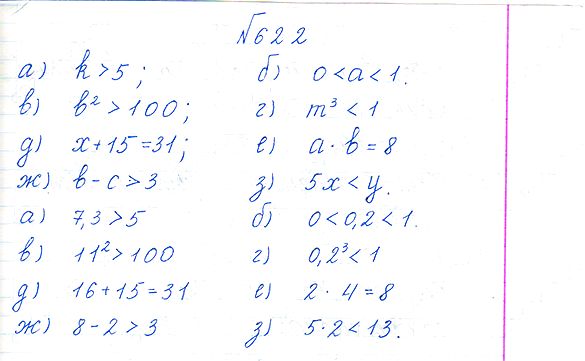 №622
а) k > 5 ; б) 0 < a < 1.
в) b² > 100; г) m³ < 1
д) x + 15 = 31; е) a · b = 8
ж) b - c > 3 з) 5x < y.
а) 7,3 > 5 б) 0 < 0,2 < 1.
в) 11² > 100 г) 0,2³ < 1
д) 16 + 15 = 31 е) 2 · 4 = 8
ж) 8 - 2 > 3 з) 5·2 < 13.